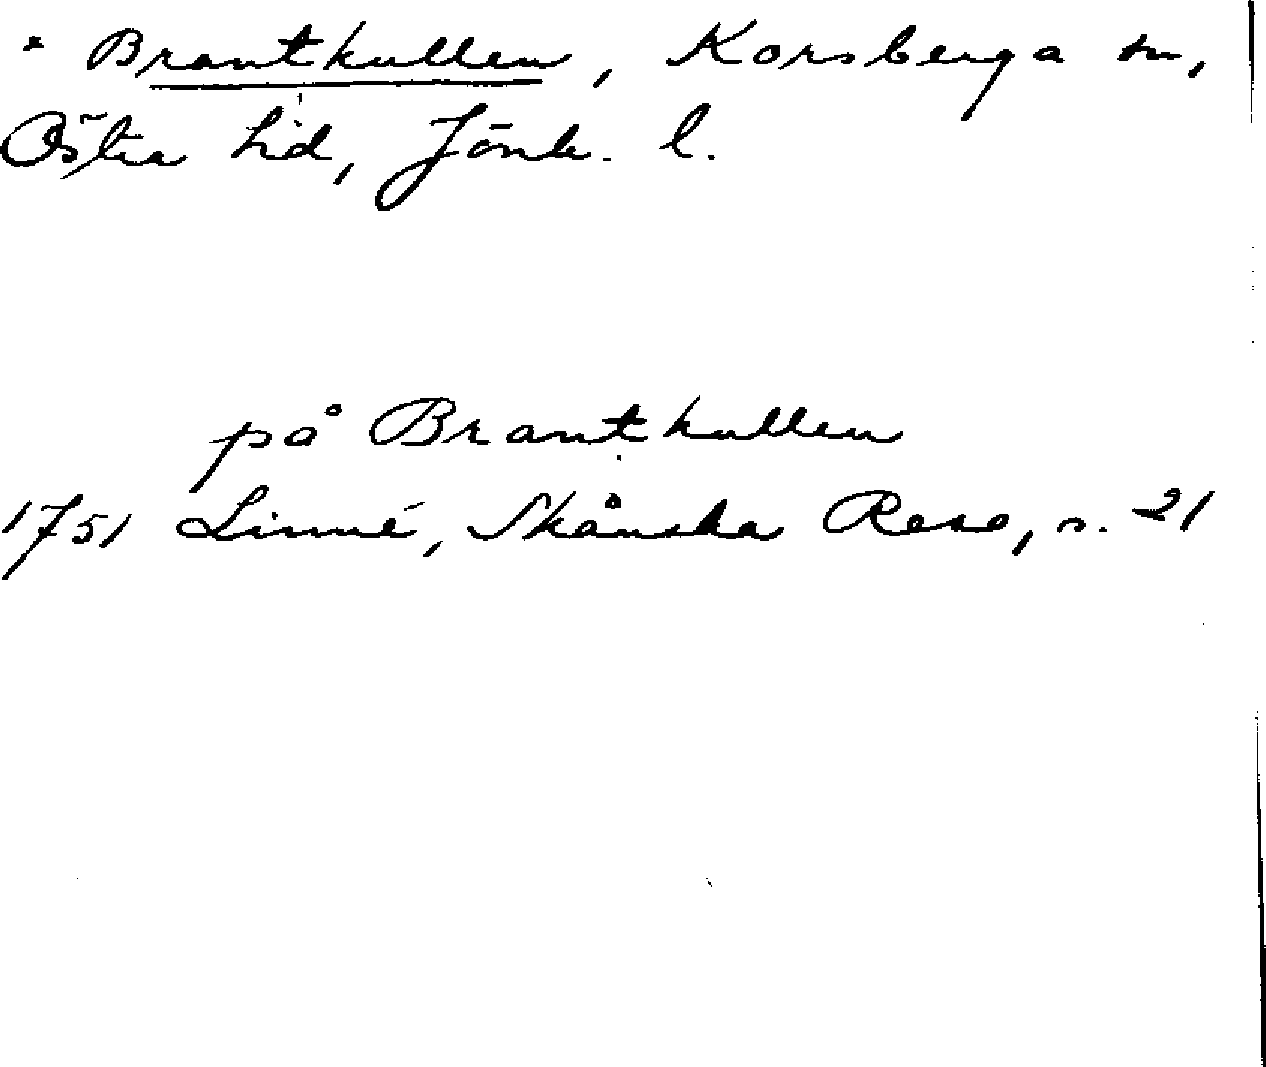 × Brantkullen, Korsberga sn,
Östra hd, Jönk. l.
på Brantkullen
1751 Linné, Skånska Resa, s. 21